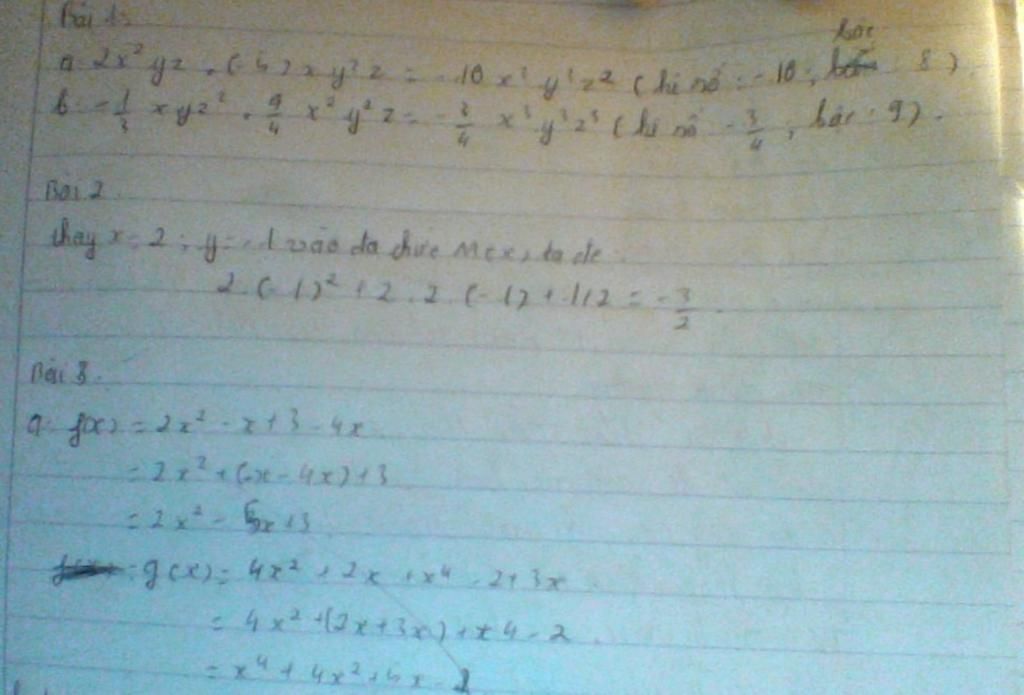 Bài 1:
a. 2x² yz . (-5) x y² z = -10 x³ y³ z² (hệ số : -10 ; bậc : 8)
b. -1/3 x y z² . 9/4 x² y² z = -3/4 x³ y³ z³ (hệ số -3/4 ; bậc : 9).
Bài 2.
thay x = 2 ; y = -1 vào đa thức M(x) ta đc
2.(-1)² + 2.2.(-1) + 1/2 = -3/2
Bài 3.
a. f(x) = 2x² - x + 3 - 4x
= 2x² + (-x - 4x) + 3
= 2x² - 5x + 3
g(x) = 4x² + 2x + x⁴ - 2 + 3x
= 4x² + (2x + 3x) + x4 - 2
= x⁴ + 4x² + 5x - 2